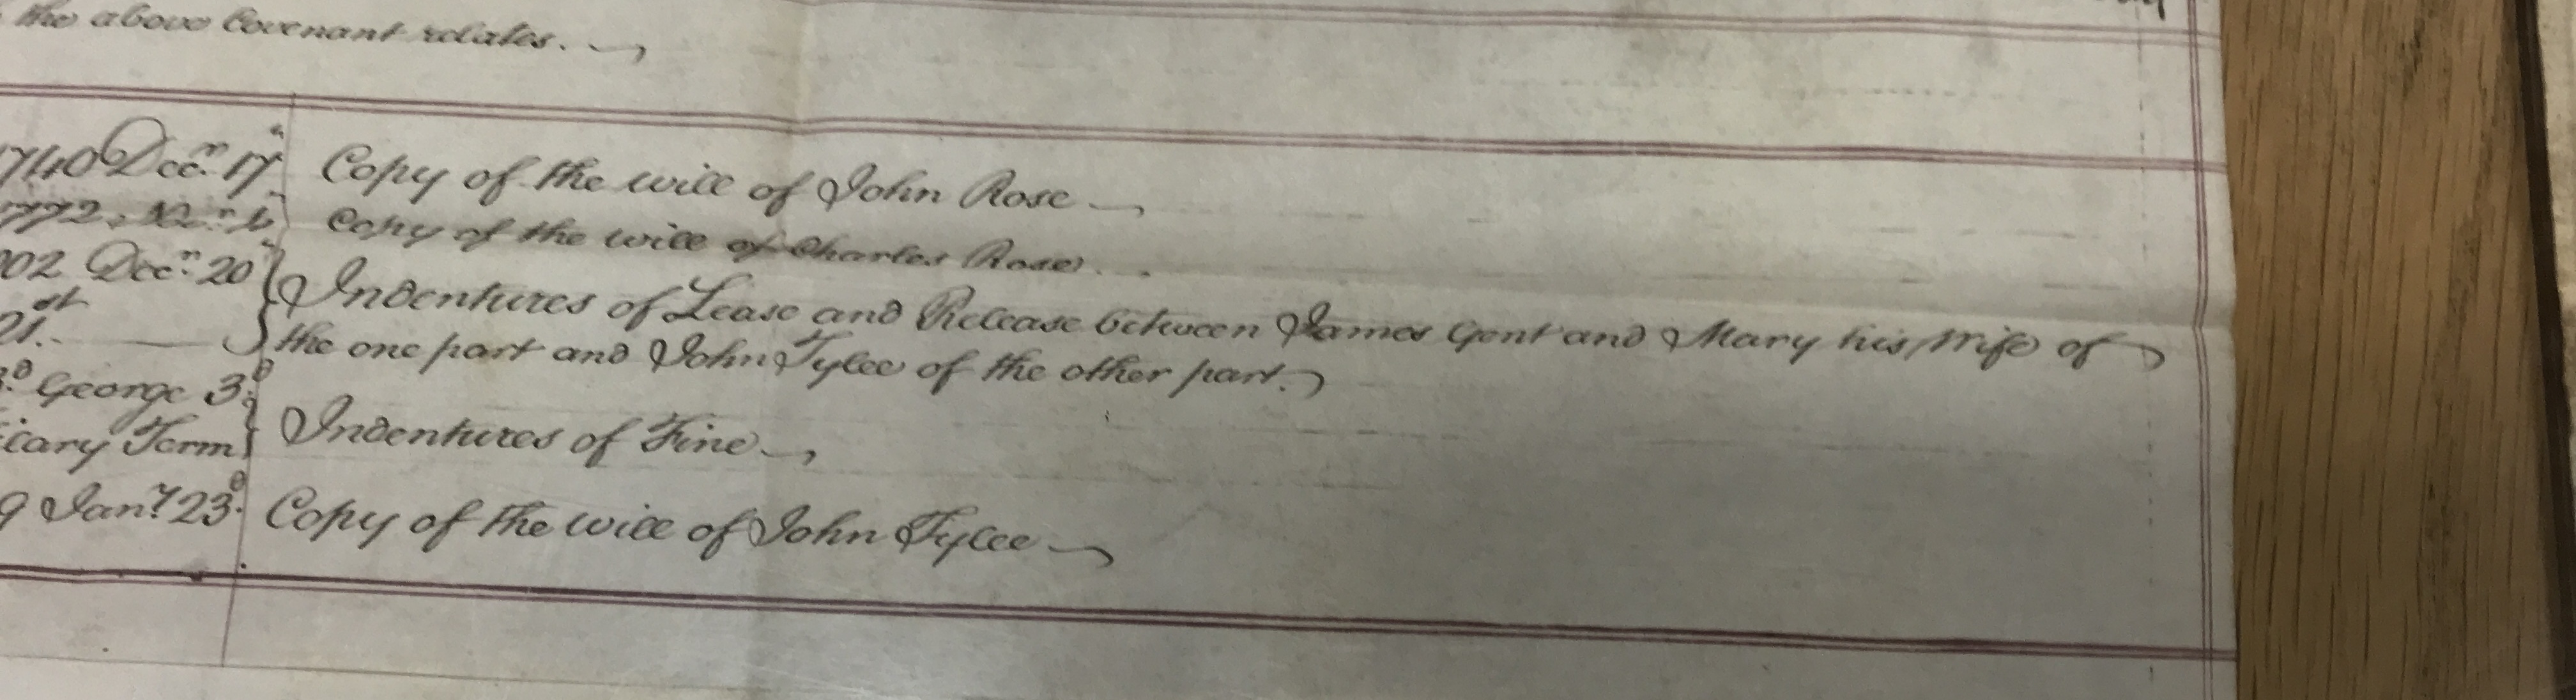 the above Covenant relates.
1740 Decr. 17th Copy of the will of John Rose
1772 Copy of the will of Charles Rose
02 Decr. 20th Indentures of Lease and Release between James Gent and Mary his Wife of
21.st the one part and John Tylee of the other part.
George 3d
lary Term Indentures of Fine
9 Jany. 23d. Copy of the will of John Tylee